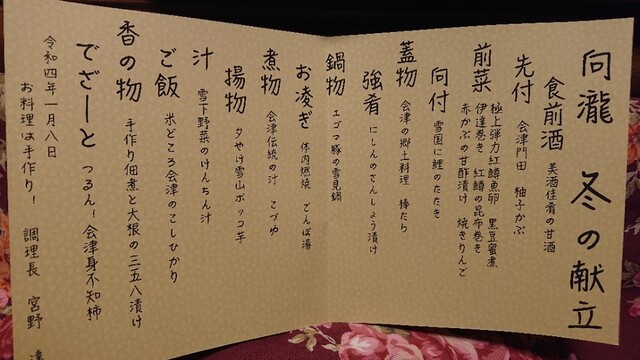 向瀧 冬の献立
食前酒 美酒佳肴の甘酒
先付 会津門田 柚子かぶ
前菜 極上弾力紅鱒魚卵 黒豆蜜煮
伊達巻き 紅鱒の昆布巻き
赤かぶの甘酢漬け 焼きりんご
向付 雪国に鯉のたたき
蓋物 会津の郷土料理 棒たら
強肴 にしんのさんしょう漬け
鍋物 エゴマ豚の雪見鍋
お凌ぎ 体内燃焼 ごんぼ湯
煮物 会津伝統の汁 こづゆ
揚物 夕やけ雪山ボッコ芋
汁 雪下野菜のけんちん汁
ご飯 米どころ会津のこしひかり
香の物 手作り佃煮と大根の三五八漬け
でざーと つるん!会津身不知柿
令和四年一月八日
お料理は手作り! 調理長 宮野